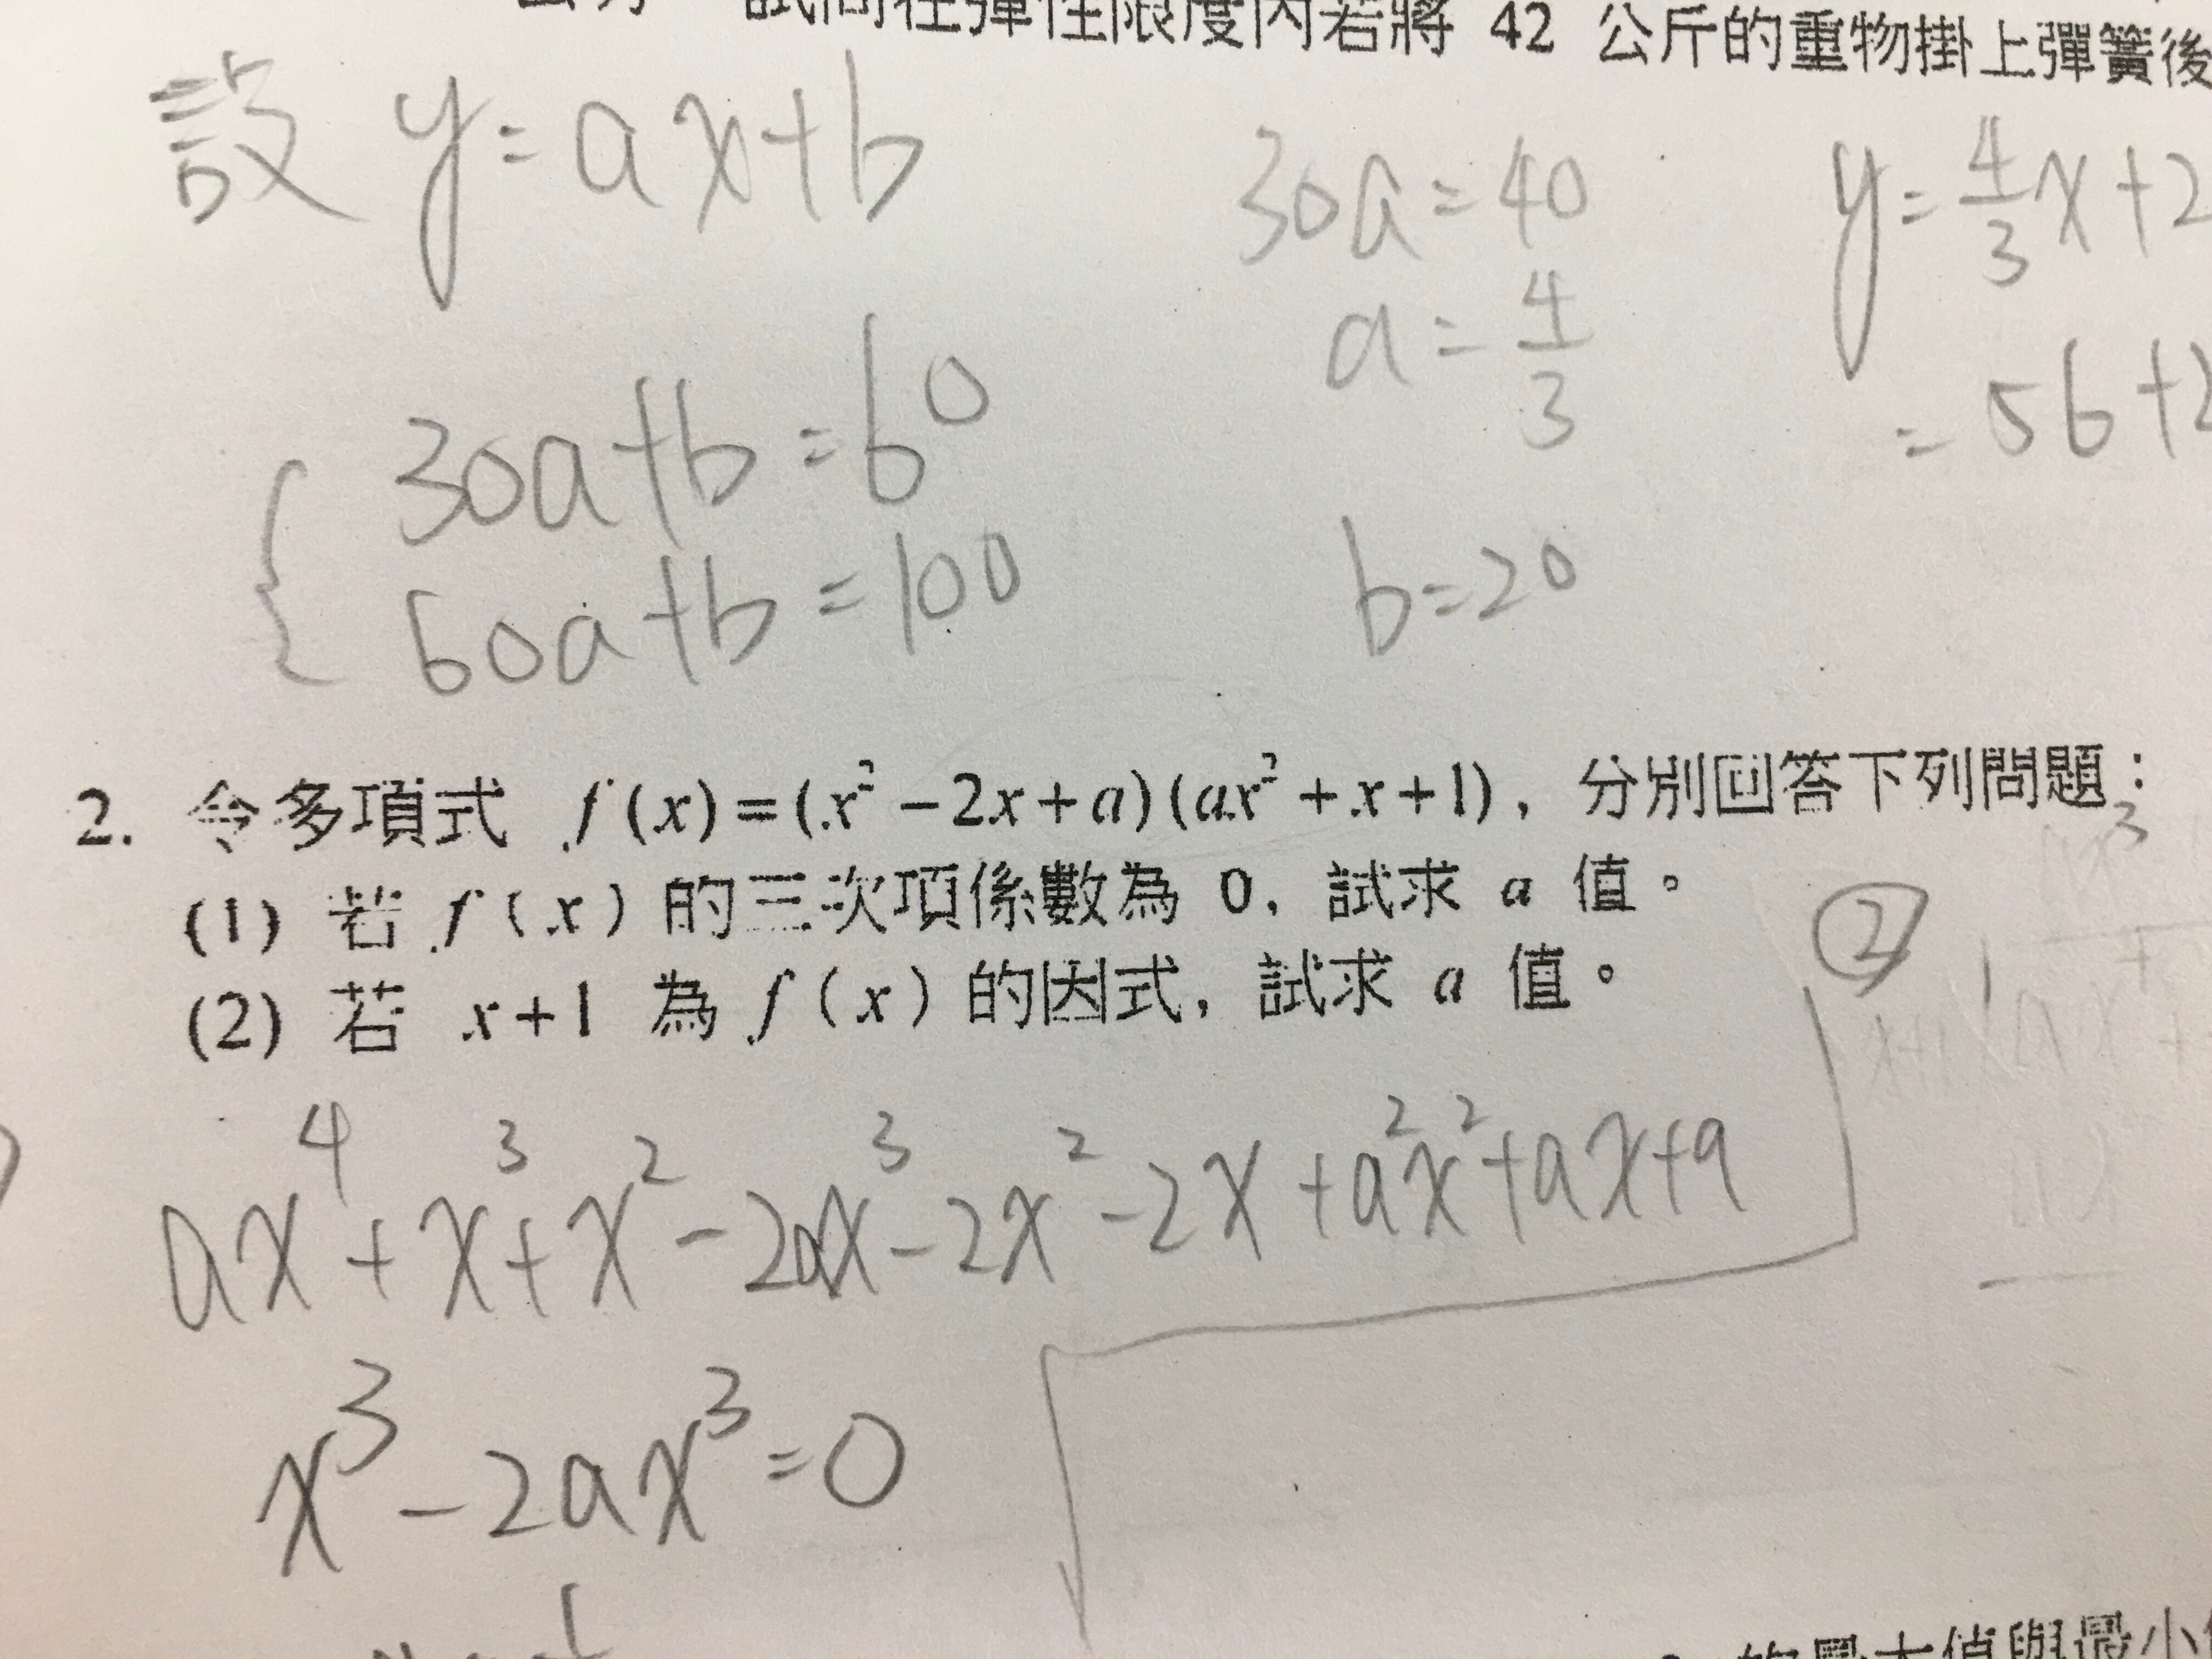 試問在彈性限度內若將 42 公斤的重物掛上彈簧後
設 y=ax+b
30a=40
y=4/3x+2
a=4/3
=56+2
{30a+b=60
60a+b=100
b=20
2. 令多項式 f(x)=(x²-2x+a)(ax²+x+1)，分別回答下列問題：
(1) 若 f(x) 的三次項係數為 0，試求 a 值。
(2) 若 x+1 為 f(x) 的因式，試求 a 值。
②
ax⁴+x³+x²-2ax³-2x²-2x+a²x²+ax+a
x³-2ax³=0
的最大值與最小